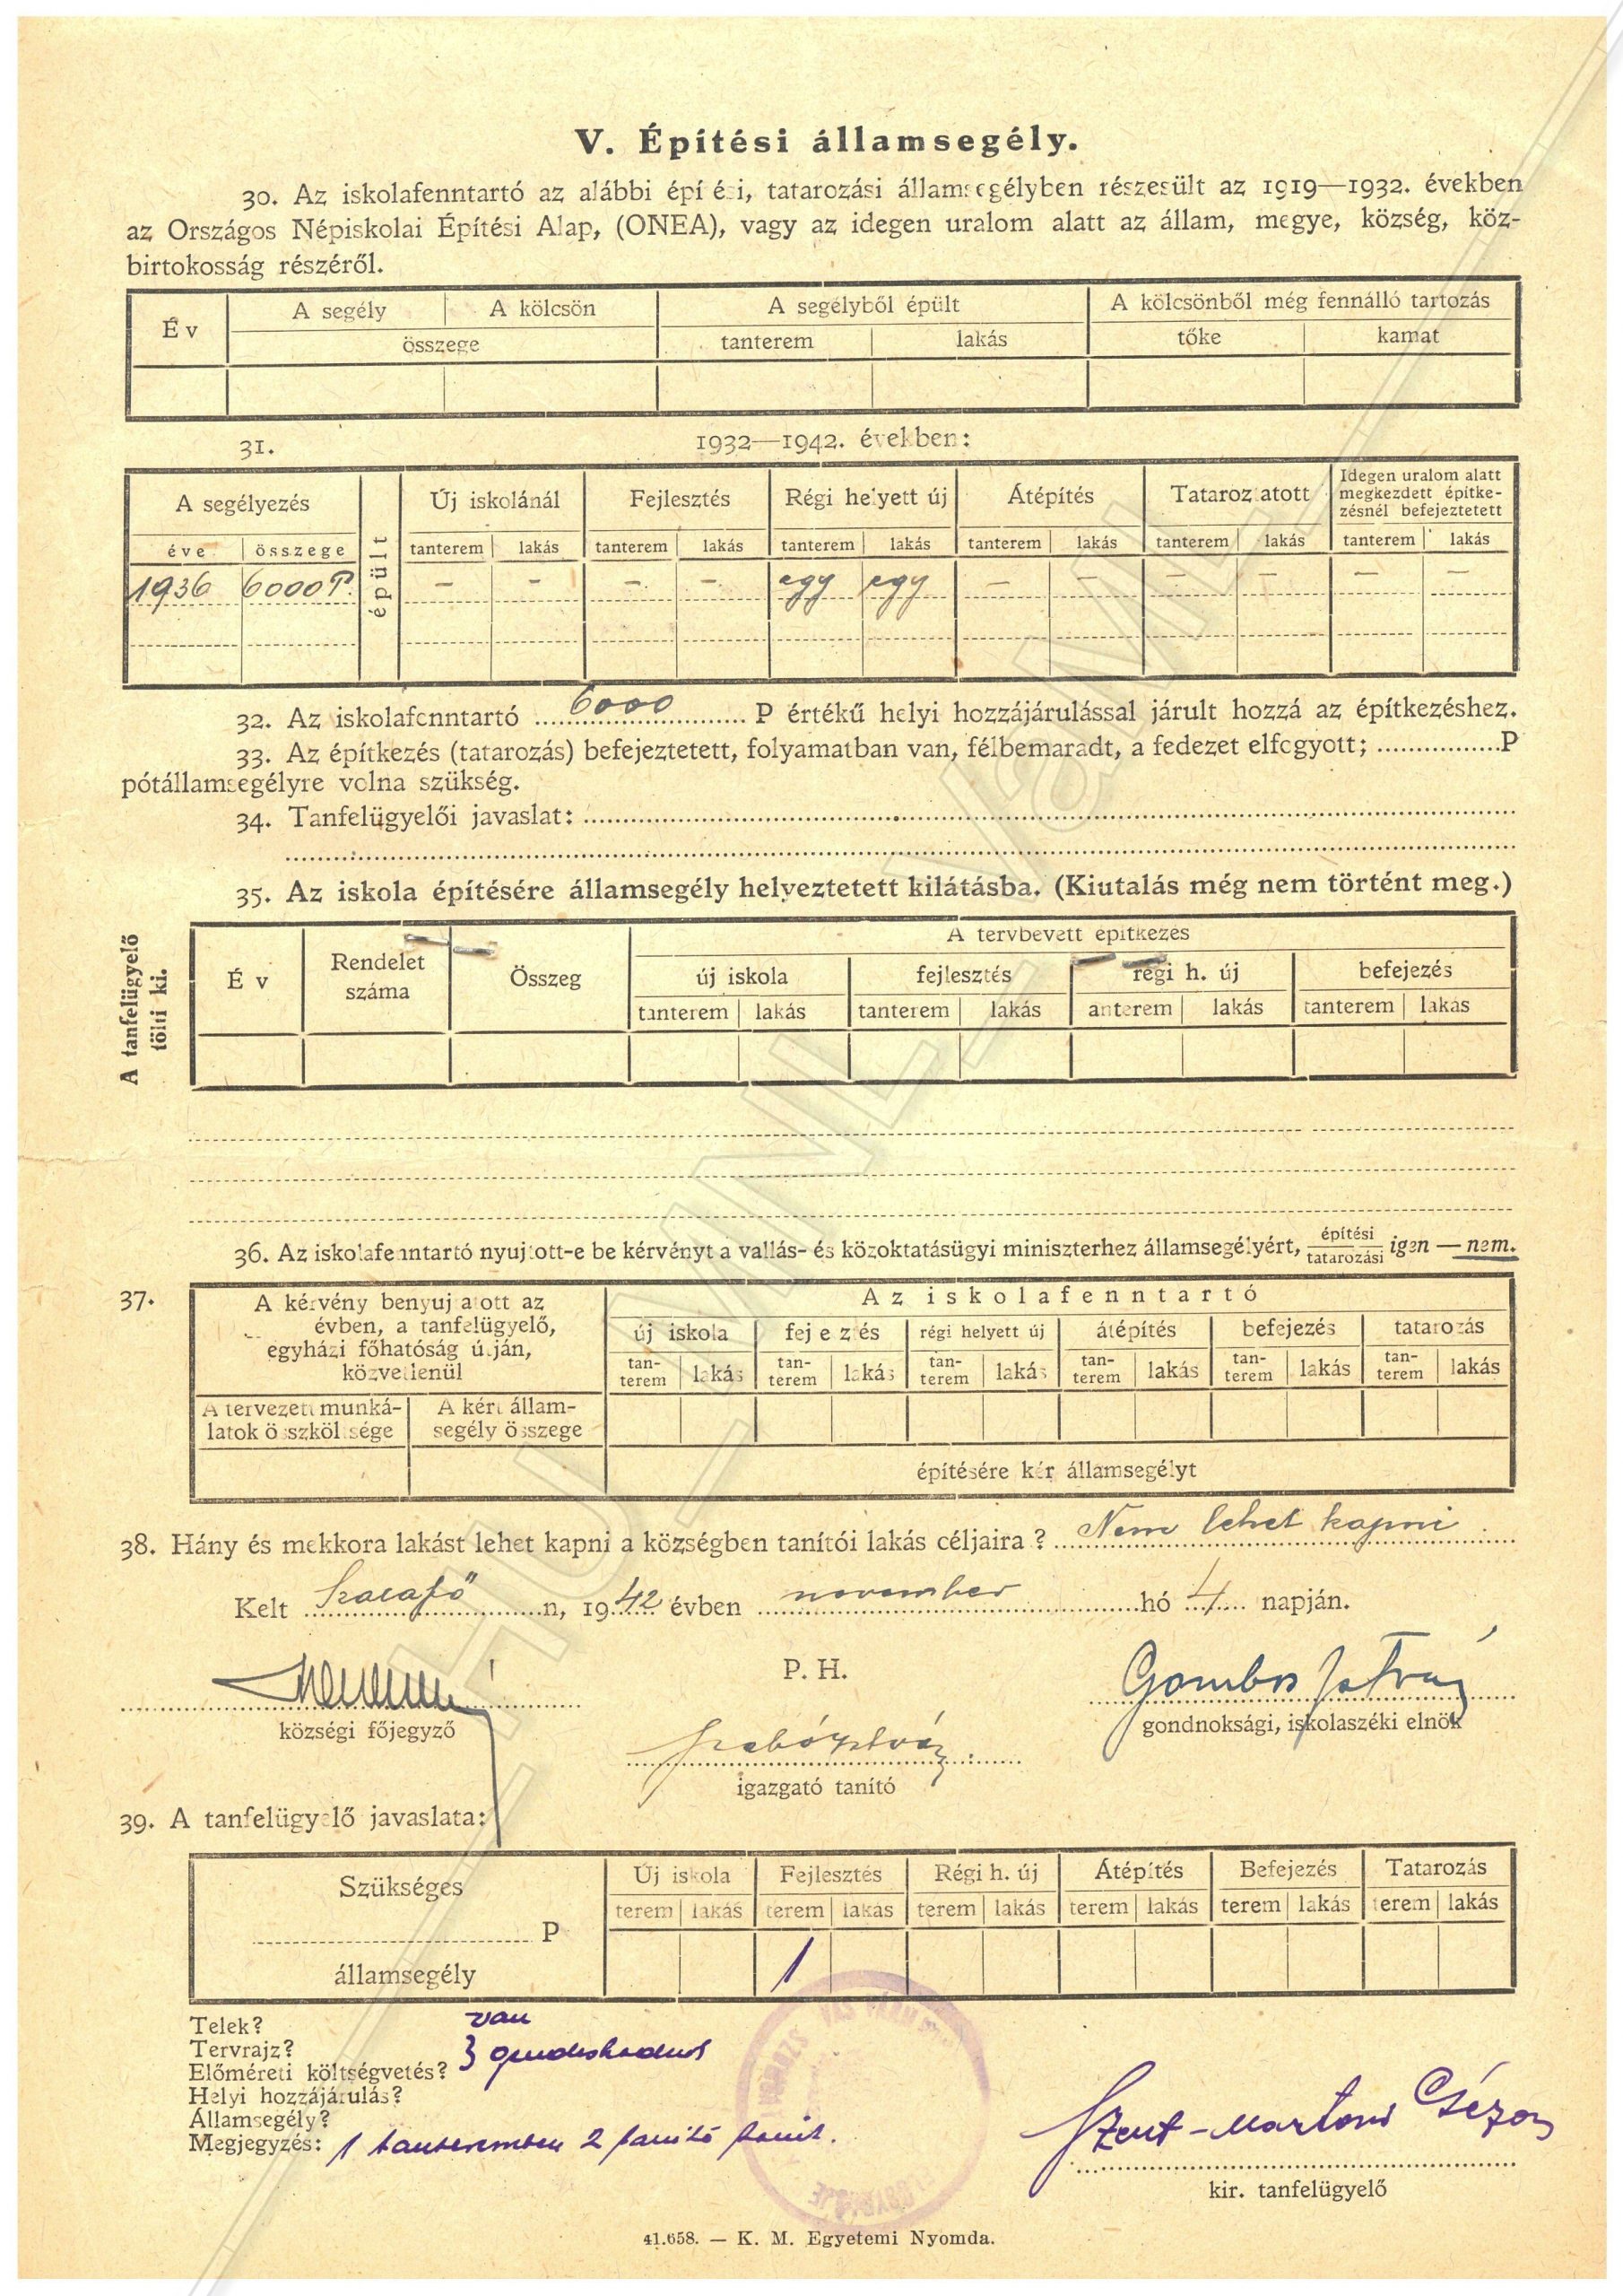 V. Építési államsegély.
30. Az iskolafenntartó az alábbi építési, tatarozási államsegélyben részesült az 1919—1932. években
az Országos Népiskolai Építési Alap, (ONEA), vagy az idegen uralom alatt az állam, megye, község, köz-
birtokosság részéről.
Év A segély A kölcsön A segélyből épült A kölcsönből még fennálló tartozás
összege tanterem lakás tőke kamat
31. 1932—1942. években:
A segélyezés épült Új iskolánál Fejlesztés Régi helyett új Átépítés Tataroztatott Idegen uralom alatt
megkezdett építke-
zésnél befejeztetett
éve összege tanterem lakás tanterem lakás tanterem lakás tanterem lakás tanterem lakás tanterem lakás
1936 6000 P. — — — — egy egy — — — — — —
32. Az iskolafenntartó 6000 P értékű helyi hozzájárulással járult hozzá az építkezéshez.
33. Az építkezés (tatarozás) befejeztetett, folyamatban van, félbemaradt, a fedezet elfogyott; P
pótállamsegélyre volna szükség.
34. Tanfelügyelői javaslat:
35. Az iskola építésére államsegély helyeztetett kilátásba. (Kiutalás még nem történt meg.)
A tanfelügyelő
tölti ki.
Év Rendelet száma Összeg A tervbevett építkezés
új iskola fejlesztés régi h. új befejezés
tanterem lakás tanterem lakás tanterem lakás tanterem lakás
36. Az iskolafenntartó nyujtott-e be kérvényt a vallás- és közoktatásügyi miniszterhez államsegélyért, építési tatarozási igen — nem.
37. A kérvény benyujtatott az Az iskolafenntartó
évben, a tanfelügyelő,
egyházi főhatóság útján,
közvetlenül
új iskola fejlesztés régi helyett új átépítés befejezés tatarozás
tan-terem lakás tan-terem lakás tan-terem lakás tan-terem lakás tan-terem lakás tan-terem lakás
A tervezett munká- A kért állam-
latok összköltsége segély összege
építésére kér államsegélyt
38. Hány és mekkora lakást lehet kapni a községben tanítói lakás céljaira? Nem lehet kapni
Kelt Szalafő n, 1942 évben november hó 4 napján.
P. H.
Gombos István
községi főjegyző
gondnoksági, iskolaszéki elnök
Szabó István
igazgató tanító
39. A tanfelügyelő javaslata:
Szükséges Új iskola Fejlesztés Régi h. új Átépítés Befejezés Tatarozás
terem lakás terem lakás terem lakás terem lakás terem lakás terem lakás
P
államsegély 1
Telek? van
Tervrajz?
Előméreti költségvetés?
Helyi hozzájárulás?
Államsegély?
Megjegyzés: 1 tanteremben 2 tanító tanít.
Szent-Mártoni Géza
kir. tanfelügyelő
41.658. — K. M. Egyetemi Nyomda.
HU_MNL_VaML